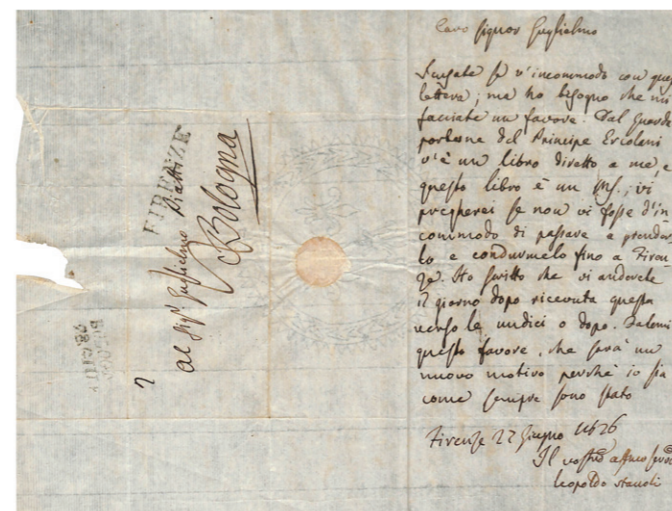 Caro Signor Guglielmo
Scusate se v'incommodo con ques
lettera; ma ho bisogno che mi
facciate un favore. Dal Guarda
portone del Principe Ercolani
v'è un libro diretto a me, e
questo libro è un MS.; vi
pregherei se non vi fosse d'in
commodo di passare a prender
lo e condurmelo fino a Firen
ze. Ho scritto che vi anderete
il giorno dopo ricevuta questa
verso le undici o dopo. Fatemi
questo favore, che sarà un
nuovo motivo perchè io sia
come sempre sono stato
Firenze 22 Giugno
Il vostro affmo servo
Leopoldo
FIRENZE
Al Sigr. Guglielmo Piatti
Bologna
2